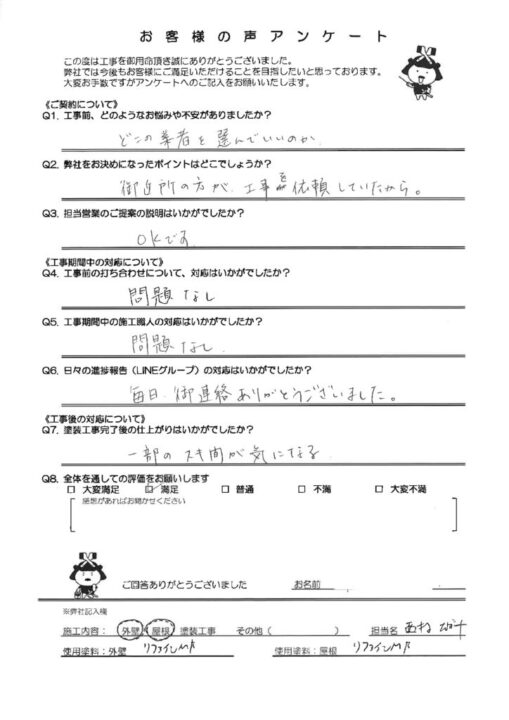 お客様の声アンケート
この度は工事を御用命頂き誠にありがとうございました。
弊社では今後もお客様にご満足いただけることを目指したいと思っております。
大変お手数ですがアンケートへのご記入をお願いいたします。
《ご契約について》
Q1. 工事前、どのようなお悩みや不安がありましたか?
どこの業者を選んでいいのか
Q2. 弊社をお決めになったポイントはどこでしょうか?
御近所の方が、工事を依頼していたから。
Q3. 担当営業のご提案の説明はいかがでしたか?
OKです
《工事期間中の対応について》
Q4. 工事前の打ち合わせについて、対応はいかがでしたか?
問題なし
Q5. 工事期間中の施工職人の対応はいかがでしたか?
問題なし
Q6. 日々の進捗報告(LINEグループ)の対応はいかがでしたか?
毎日、御連絡ありがとうございました。
《工事後の対応について》
Q7. 塗装工事完了後の仕上がりはいかがでしたか?
一部のスキ間が気になる
Q8. 全体を通しての評価をお願いします
□ 大変満足 ☑ 満足 □ 普通 □ 不満 □ 大変不満
感想があればお聞かせください
ご回答ありがとうございました お名前
※弊社記入欄
施工内容: 外壁・屋根 塗装工事 その他( ) 担当名
使用塗料:外壁 リファインMF 使用塗料:屋根 リファインMF